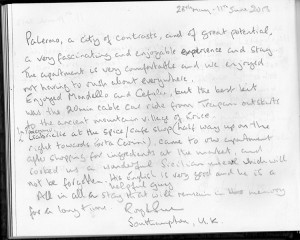 28th May - 11th June 2013
Palermo, a city of contrasts, and of great potential,
a very fascinating and enjoyable experience and stay
The apartment is very comfortable and we enjoyed
not having to rush about everywhere.
Enjoyed Mondello and Cefalu, but the best bit
was the 20min cable car ride from Trapani outskirts
to the ancient mountain village of Erice.
at the spice/cafe shop (half way up on the
right towards Porta ), came to our apartment
after shopping for ingredients at the market and
cooked us a wonderful Sicilian which will
not be forgotten. His English is very good and he is a
helpful guy.
All in all a stay that will remain in the memory
for a long time.
Southampton, U.K